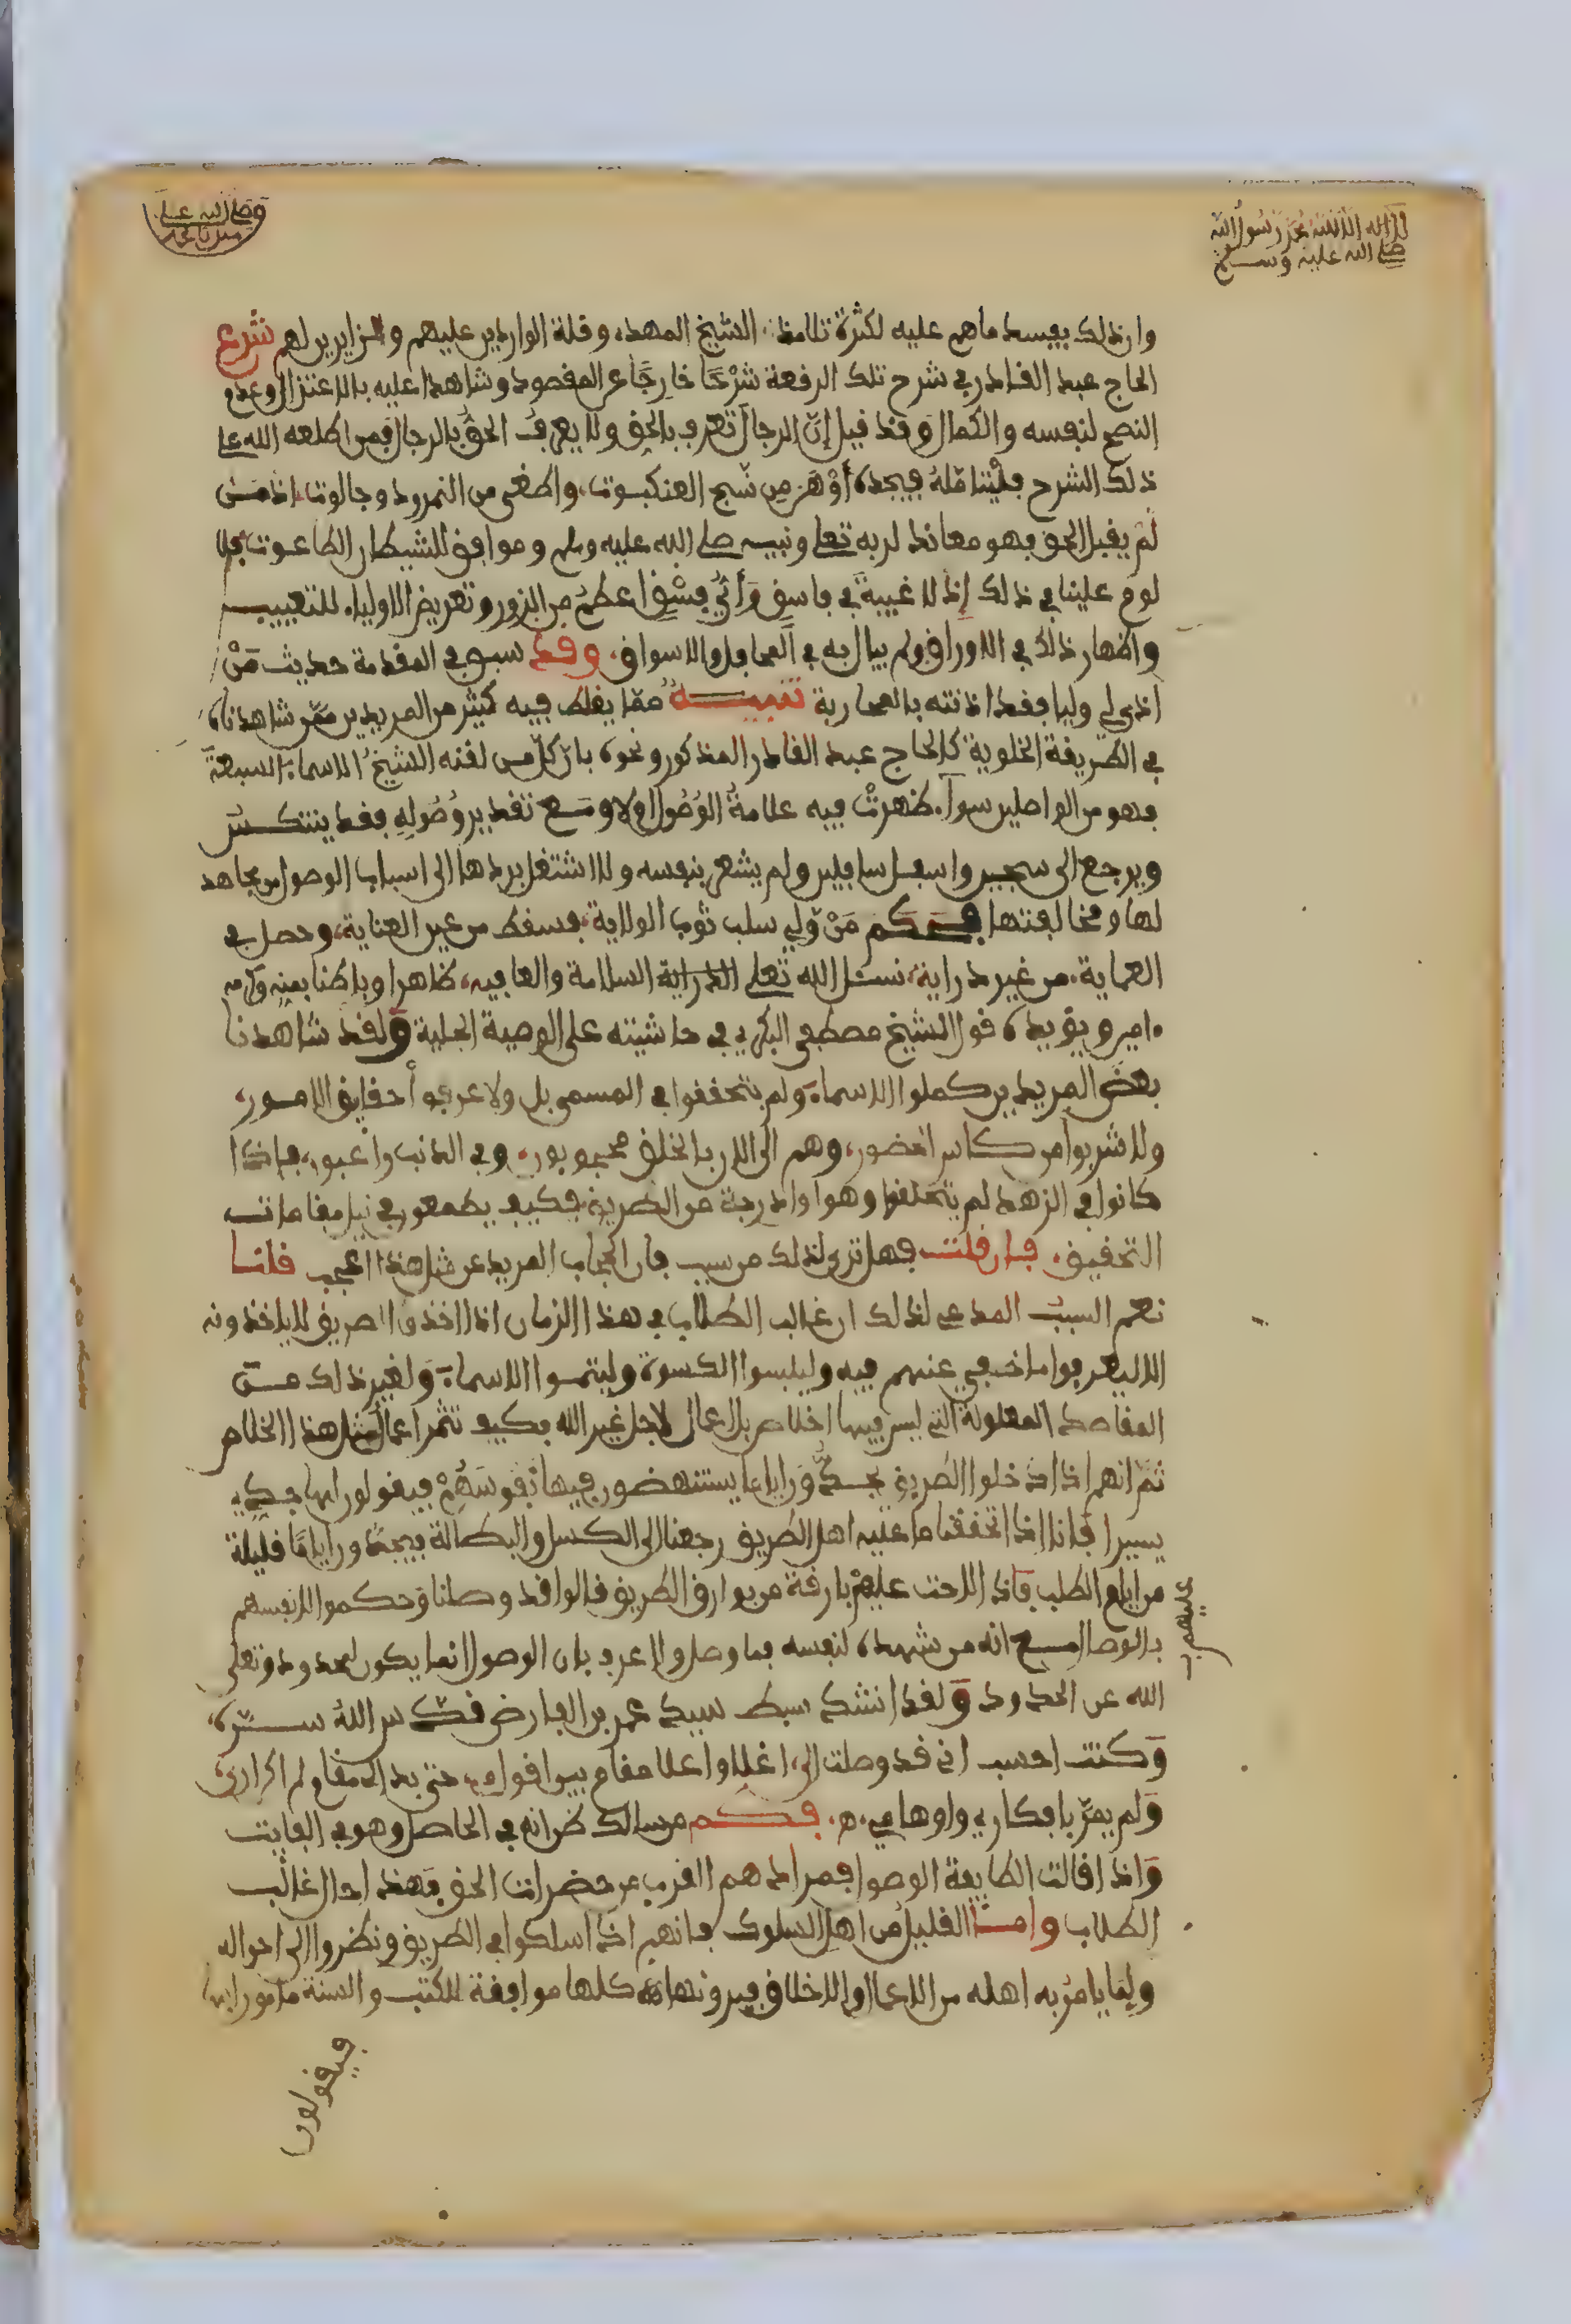 لا اله الا الله محمد رسول الله
صلى الله عليه وسلم
وصلى الله على
سيدنا محمد
وان ذلك يفسد ما هم عليه لكثرة تلامذة الشيخ المهدي وقلة الواردين عليهم والزايرين لهم شرع
الحاج عبد القادر في شرح تلك الرقعة شرحًا خارجًا عن المقصود وشاهدا عليه بالاعتزال وعدم
النصح لنفسه والكمال وقد قيل إنّ الرجال تعرف بالحق ولا يعرف الحقُّ بالرجال فمن اطلعه الله على
ذلك الشرح فليتأمّلهُ فيجده أوْهَن مِن نَسج العنكبوت، واطغى من النمرود وجالوت، اذ مَن
لم يقبل الحق فهو معاند لربه تعلى ونبيه صلى الله عليه وسلم وموافق للشيطان الطاغوت فلا
لوم علينا في ذلك إذ لا غيبةَ في فاسق وَأيُّ فِسْقٍ اعظمُ من الزور وتعريض الاولياء للتعييب
واظهار ذلك في الاوراق ولم يبال به في المحافل والاسواق، وقد سبق في المقدمة حديث مَنْ
اذى لي وليا فقد اذنته بالمحاربة تنبيـــه ممّا يغلط فيه كثير من المريدين ممّن شاهدناه
في الطريقة الخلوية كالحاج عبد القادر المذكور ونحوه بان كلّ من لقنه الشيخُ الاسماءَ السبعةَ
فهو من الواصلين سوآء ظهرتْ فيه علامةُ الوُصُول اولا ومَع تقدير وُصُولِهِ فقد ينتكس
ويرجع الى سجين واسفل سافلين ولم يشعر بنفسه ولا اشتغل بردها الى اسباب الوصول من مجاهد
لها ومخالفتها فكم مَنْ وّلي سلب ثوب الولاية، فسقط من عين العناية، وحصل في
العماية، من غير دراية، نسئل الله تعلى الدراية السلامة والعافيه، ظاهرا وباطنا بمنه وكرمه
ءامين ويؤيده قول الشيخ مصطفى البكري في حاشيته على الوصية الجلية ولقد شاهدنا
بعض المريدين كملوا الاسماءَ ولم يتحققوا في المسمى بل ولا عرفوا حقايق الامور،
ولا شربوا من كاس الحضور، وهم الى الان بالخلق محجوبون، وفي الذنب واعبور، فاذا
كانوا في الزهد لم يتخلقوا وهو اول درجة من الطريق فكيف يطمعون في نيل مقامات
التحقيق، فان قلت فهل ترى لذلك من سبب فان الحجاب المريد عن مثل هذا اعجب قلنا
نعم السبب المدعى لذلك ان غالب الطلاب في هذا الزمان اذا اخذوا الطريق لا ياخذونه
الا ليعرفوا ما خفي عنهم فيه وليلبسوا الكسوة وليتموا الاسماءَ ولغير ذلك من
المقاصد المعلولة التي ليس فيها اخلاص بل اعمال لاجل غير الله فكيف تثمر اعمال مثل هذا الخلاص
ثمّ انهم اذا دخلوا الطريق يجدّون اياما يستنهضون فيها نفوسَهُمْ فيقولون لها جدي
يسيرا فاننا اذا تحققنا ما عليه اهل الطريق رجعنا الى الكسل والبطالة فيجدون ايامًا قليلة
من ايام الطلب فاذا لاحت عليهمْ بارقة من بوارق الطريق قالوا قد وصلنا وحكموا لانفسهم
بالوصال مع انه من شهده لنفسه فما وصل ولا عرف بان الوصول انما يكون لمحدود وتعلى
الله عن الحدود ولقد انشد سبط سيدي عمر بن الفارض قدّس اللهُ سرّه،
وَكنت احسب اني قد وصلت الى، اغلا واعلا مقام بين اقوام، حتى بدا لي مقام لم اكن اراه
وَلم يمرّ بافكاري واوهامي .ه. فكم من سالك ظن انه في الحاصل وهو في الفايت
وَاذا قالت الطايفة الوصول فمرادهم القرب من حضرات الحق فهذا حال غالب
الطلاب وامّا القليلُ من اهل السلوك فانهم اذا سلكوا في الطريق ونظروا الى احواله
ولِما يامرُ به اهله من الاعمال والاخلاق فيرونها كلها موافقة للكتب والسنة مامورا بها
عليهم
فيقولون